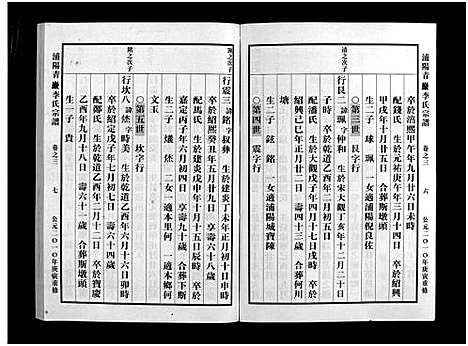 浦陽青巖李氏宗譜 卷之三 六 公元二〇一〇年庚寅重修
卒於淳熙甲午年九月廿六日未時
配錢氏 生於元祐庚午年三月十四日 卒於紹興
甲戌年十月十五日
生二子 球 珮
〇第三世 艮字行
清之次子
行艮二 諱珮 字仲和 生於宋大觀丁亥年十二月二十日
子時 卒於乾道乙酉年二月初五日
配潘氏 生於大觀戊子年十月十七日戌時 卒於
紹興己巳年正月廿二日 壽四十三歲 合葬何川
塘
生二子 鉉 銘 一女適浦陽倪良佐
〇第四世 震字行
珮之次子
行震三 諱銘 字叔彝 生於建炎丁未年正月初十日申時
卒於紹熙癸丑年五月廿九日 享壽六十七歲
配馬氏 生於建炎戊申年十月十五日辰時 卒於
嘉定丙子年六月初四日 享壽九十歲 合葬下斯
生二子 燔 烋 二女 一適本里何 一適本鄉何
文玉
〇第五世 坎字行
銘之次子
行坎八 諱烋 字時美 生於乾道乙酉年六月十六日卯時
卒於紹定戊子年七月初七日 壽六十四歲
配鄭氏 生於乾道乙酉年二月十二日 卒於寶慶
乙酉年九月十八日 壽六十一歲 合葬斯墩頭
生一子 貴
浦陽青巖李氏宗譜 卷之三 七 公元二〇一〇年庚寅重修